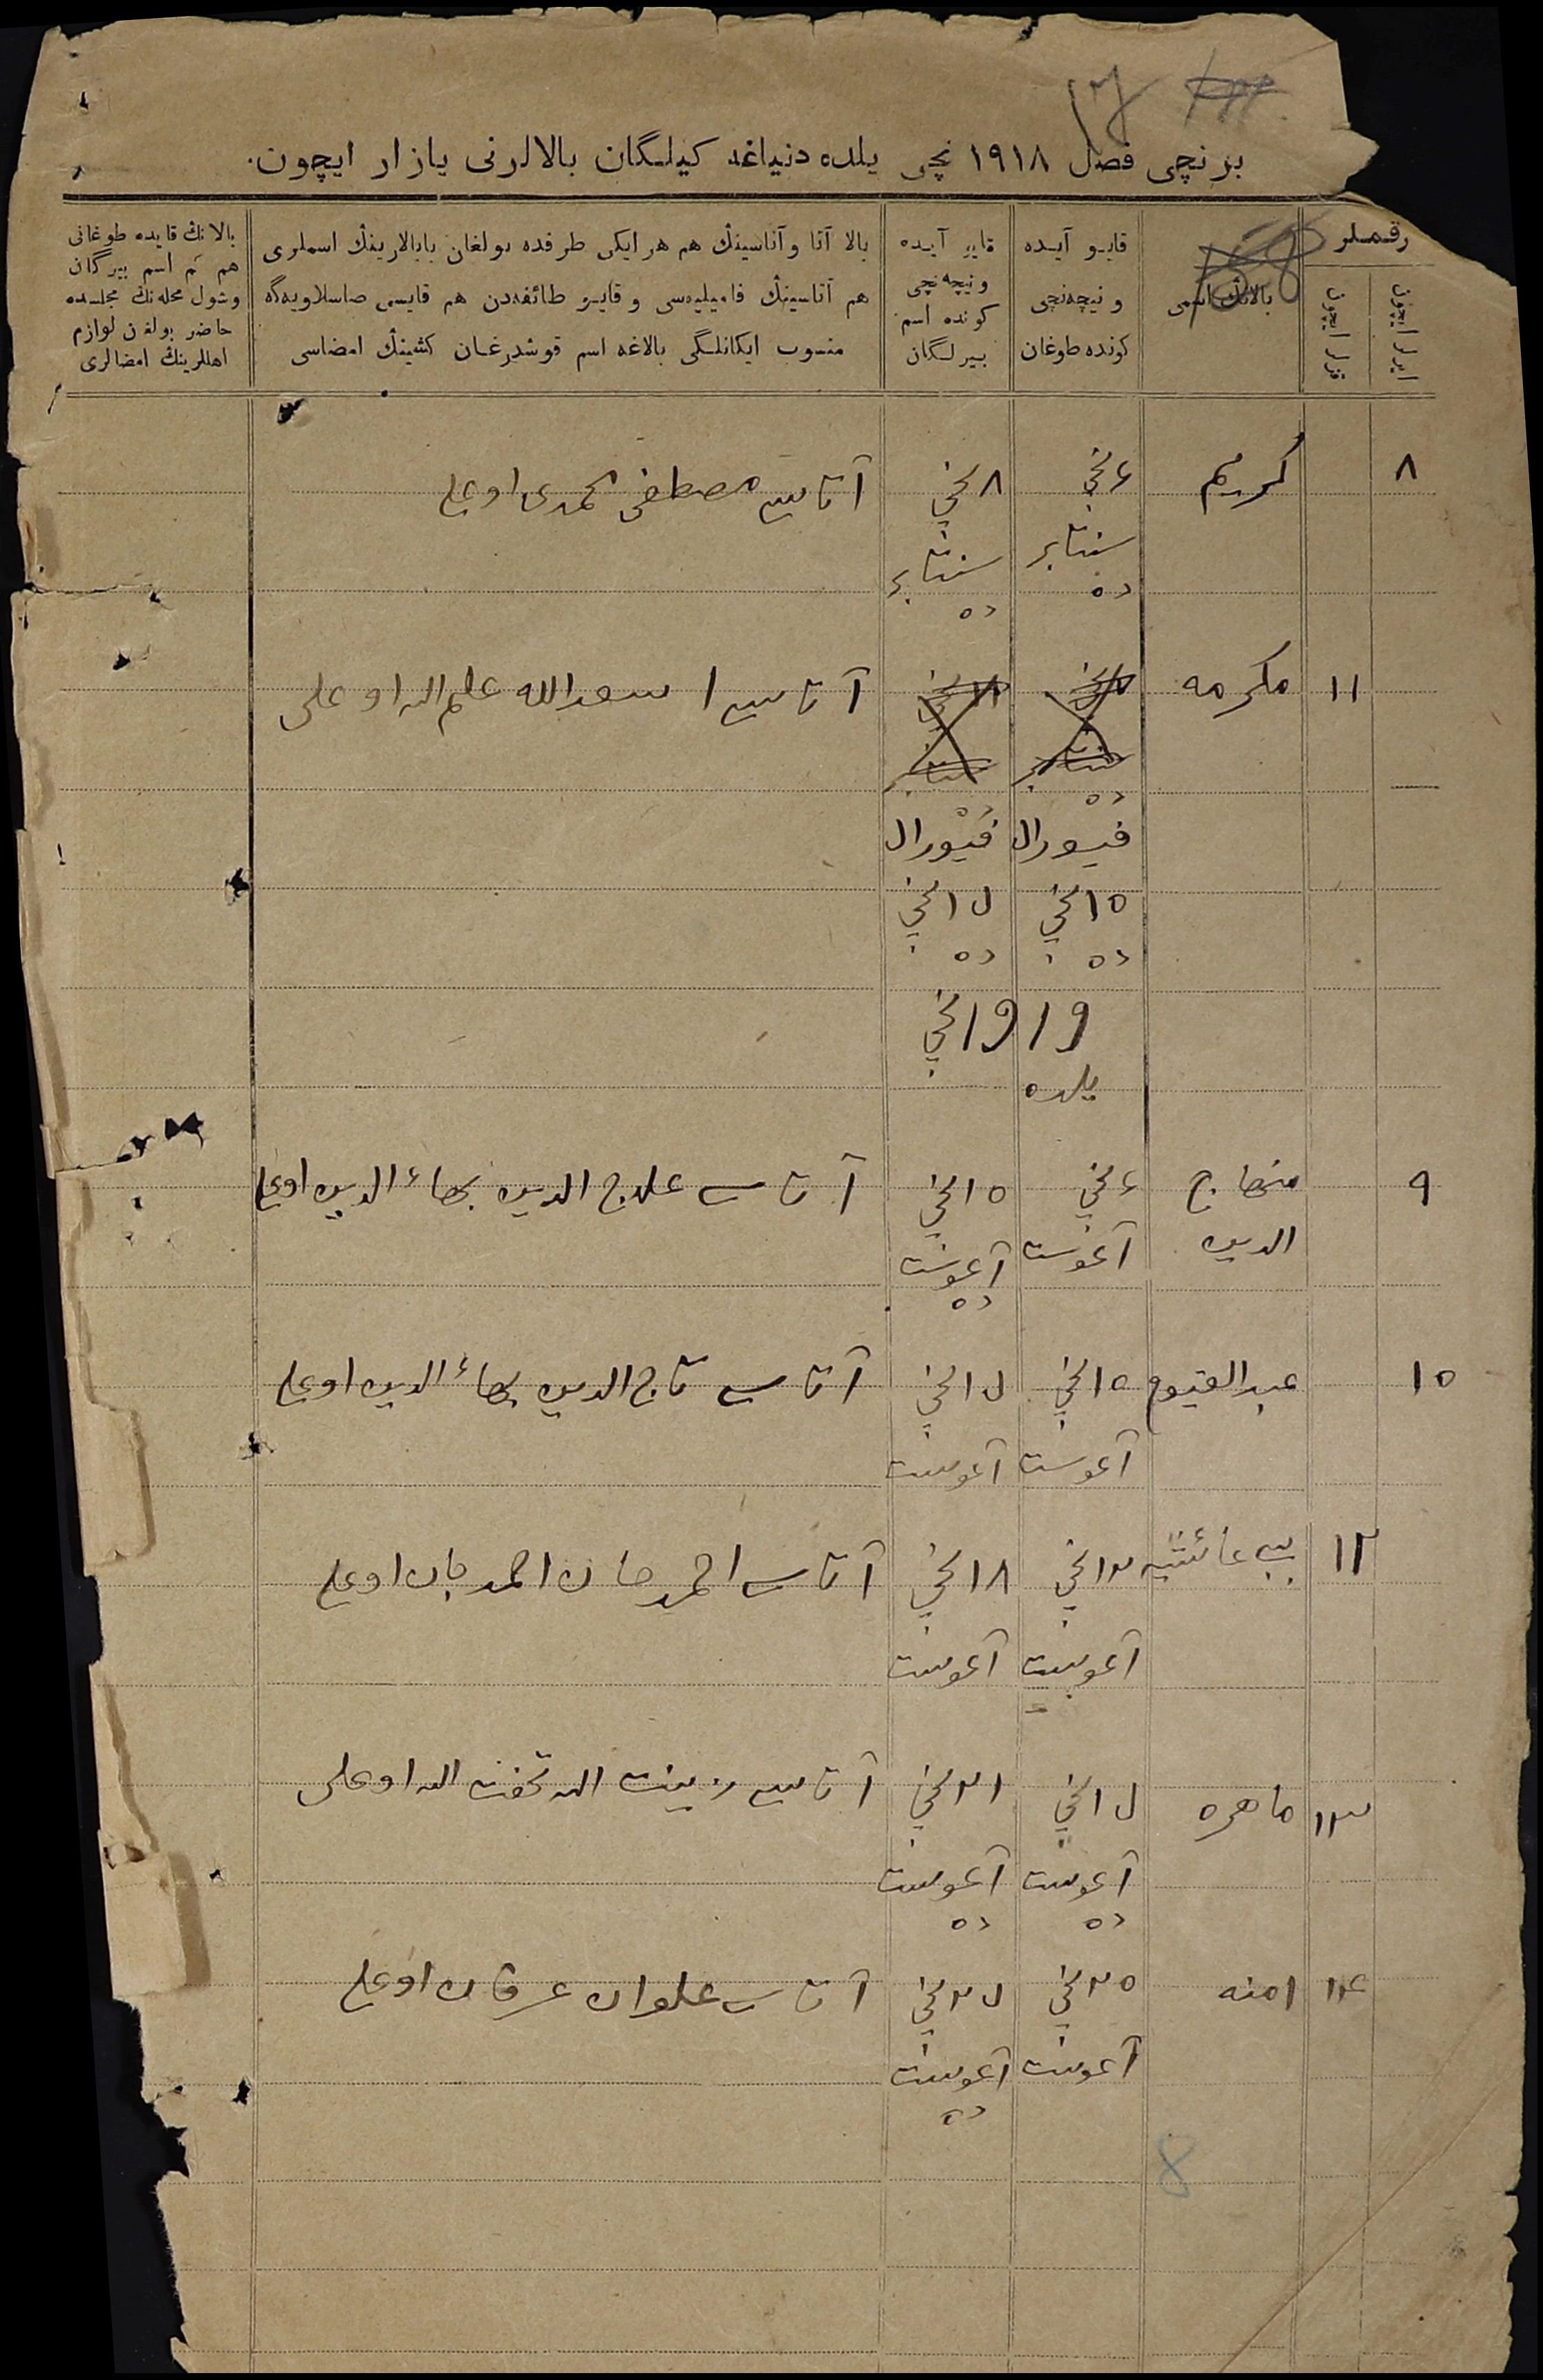 ١٣
برنچی فصل ١٩١٨ نچی یلده دنیاغه کیلگان بالالرنی یازار ایچون.
رقملر
ایرلر ایچون
قزلر ایچون
بالانڭ اسمی
قایو آیده
و نیچه‌نچی
کونده طوغان
قایو آیده
و نیچه‌نچی
کونده اسم
بیرلگان
بالا آتا و آناسینڭ هم هر ایکی طرفده بولغان بابالارینڭ اسملری
هم آتاسینڭ فامیلیه‌سی و قایو طائفه‌دن هم قایسی صاسلاویه‌گه
منسوب ایکانلگی بالاغه اسم قوشدرغان کشینڭ امضاسی
بالانڭ قایده طوغانی
هم کم اسم بیرگان
وشول محله‌نڭ مجلسده
حاضر بولغن لوازم
اهللرینڭ امضالری
٨
کریم
۶ نچی
سنتابر
ده
٨ نچی
سنتابر
ده
آتاسی مصطفی محمدی اوغلی
١١
مکرمه
ده
فیورال
١٥ نچی
ده
ده
فیورال
١٧ نچی
ده
١٩١٩ نچی
یلده
آتاسی اسعدالله علم الله اوغلی
٩
منهاج
الدین
۶ نچی
آغوست
١٥ نچی
آغوست
ده
آتاسی علاج الدین بهاء الدین اوغلی
١٥
عبدالقیوم
١٥ نچی
آغوست
١٧ نچی
آغوست
آتاسی تاج الدین بهاء الدین اوغلی
١٢
بیبی عائشه
١٢ نچی
آغوست
١٨ نچی
آغوست
آتاسی احمدجان احمدجان اوغلی
١٣
ماهره
١٧ نچی
آغوست
ده
٢١ نچی
آغوست
ده
آتاسی زینت الله تحفت الله اوغلی
١۴
امنه
٢٥ نچی
آغوست
٢٧ نچی
آغوست
ده
آتاسی علوان عرفان اوغلی
8